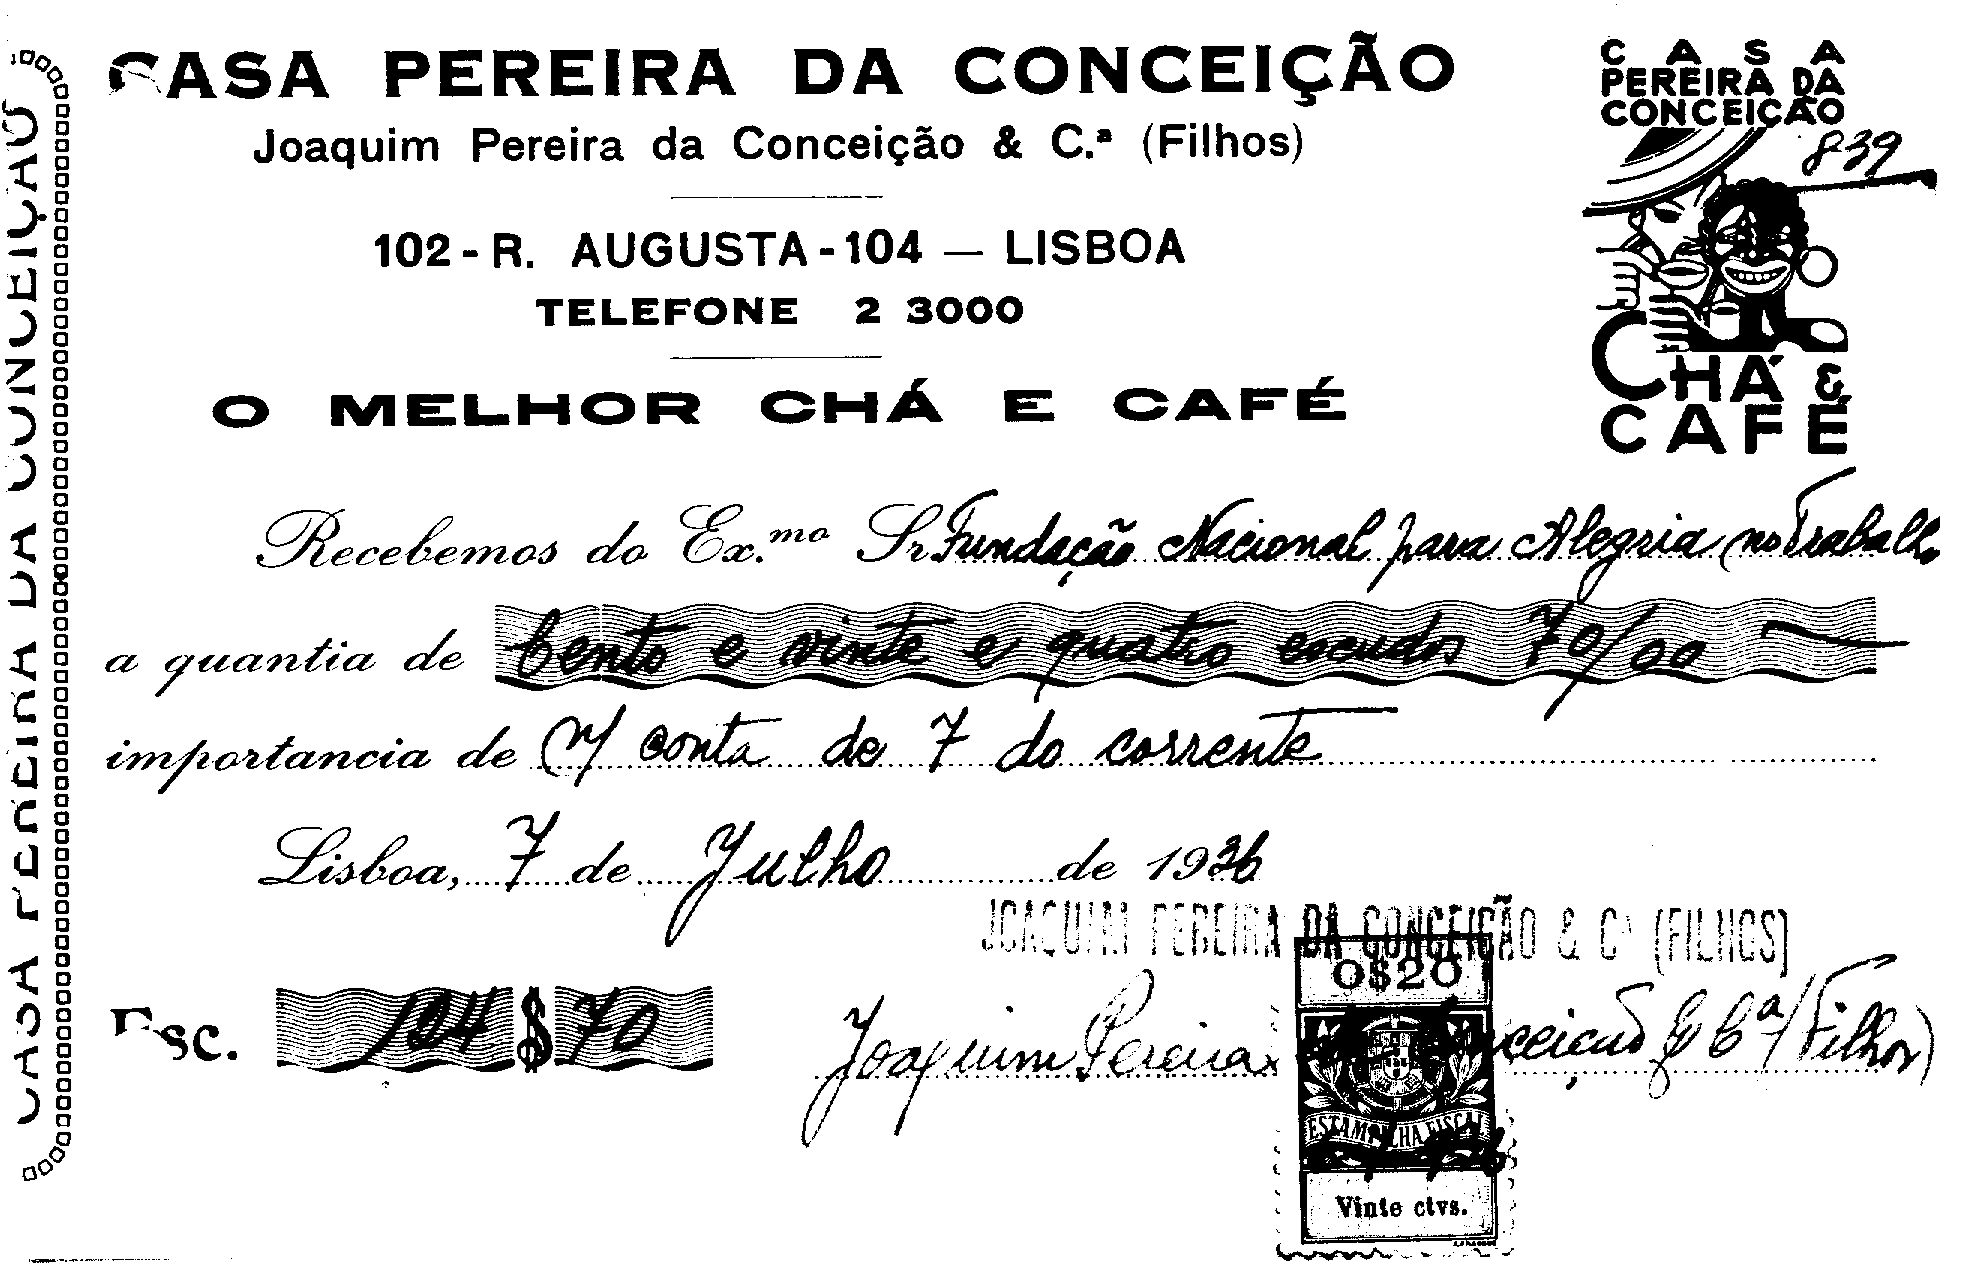 CASA PEREIRA DA CONCEIÇÃO
CASA PEREIRA DA CONCEIÇÃO
Joaquim Pereira da Conceição & C.ª (Filhos)
102 - R. AUGUSTA - 104 — LISBOA
TELEFONE 2 3000
O MELHOR CHÁ E CAFÉ
CASA
PEREIRA DA
CONCEIÇÃO
839
CHÁ &
CAFÉ
Recebemos do Ex.mo Sr Fundação Nacional para Alegria no Trabalho
a quantia de Cento e vinte e quatro escudos 70/00
importancia de n/ conta de 7 do corrente
Lisboa, 7 de Julho de 1936
JOAQUIM PEREIRA DA CONCEIÇÃO & Cª (FILHOS)
Esc. 124$70
Joaquim Pereira da Conceição & Cª (Filhos)
0$20
ESTAMPILHA FISCAL
Vinte ctvs.